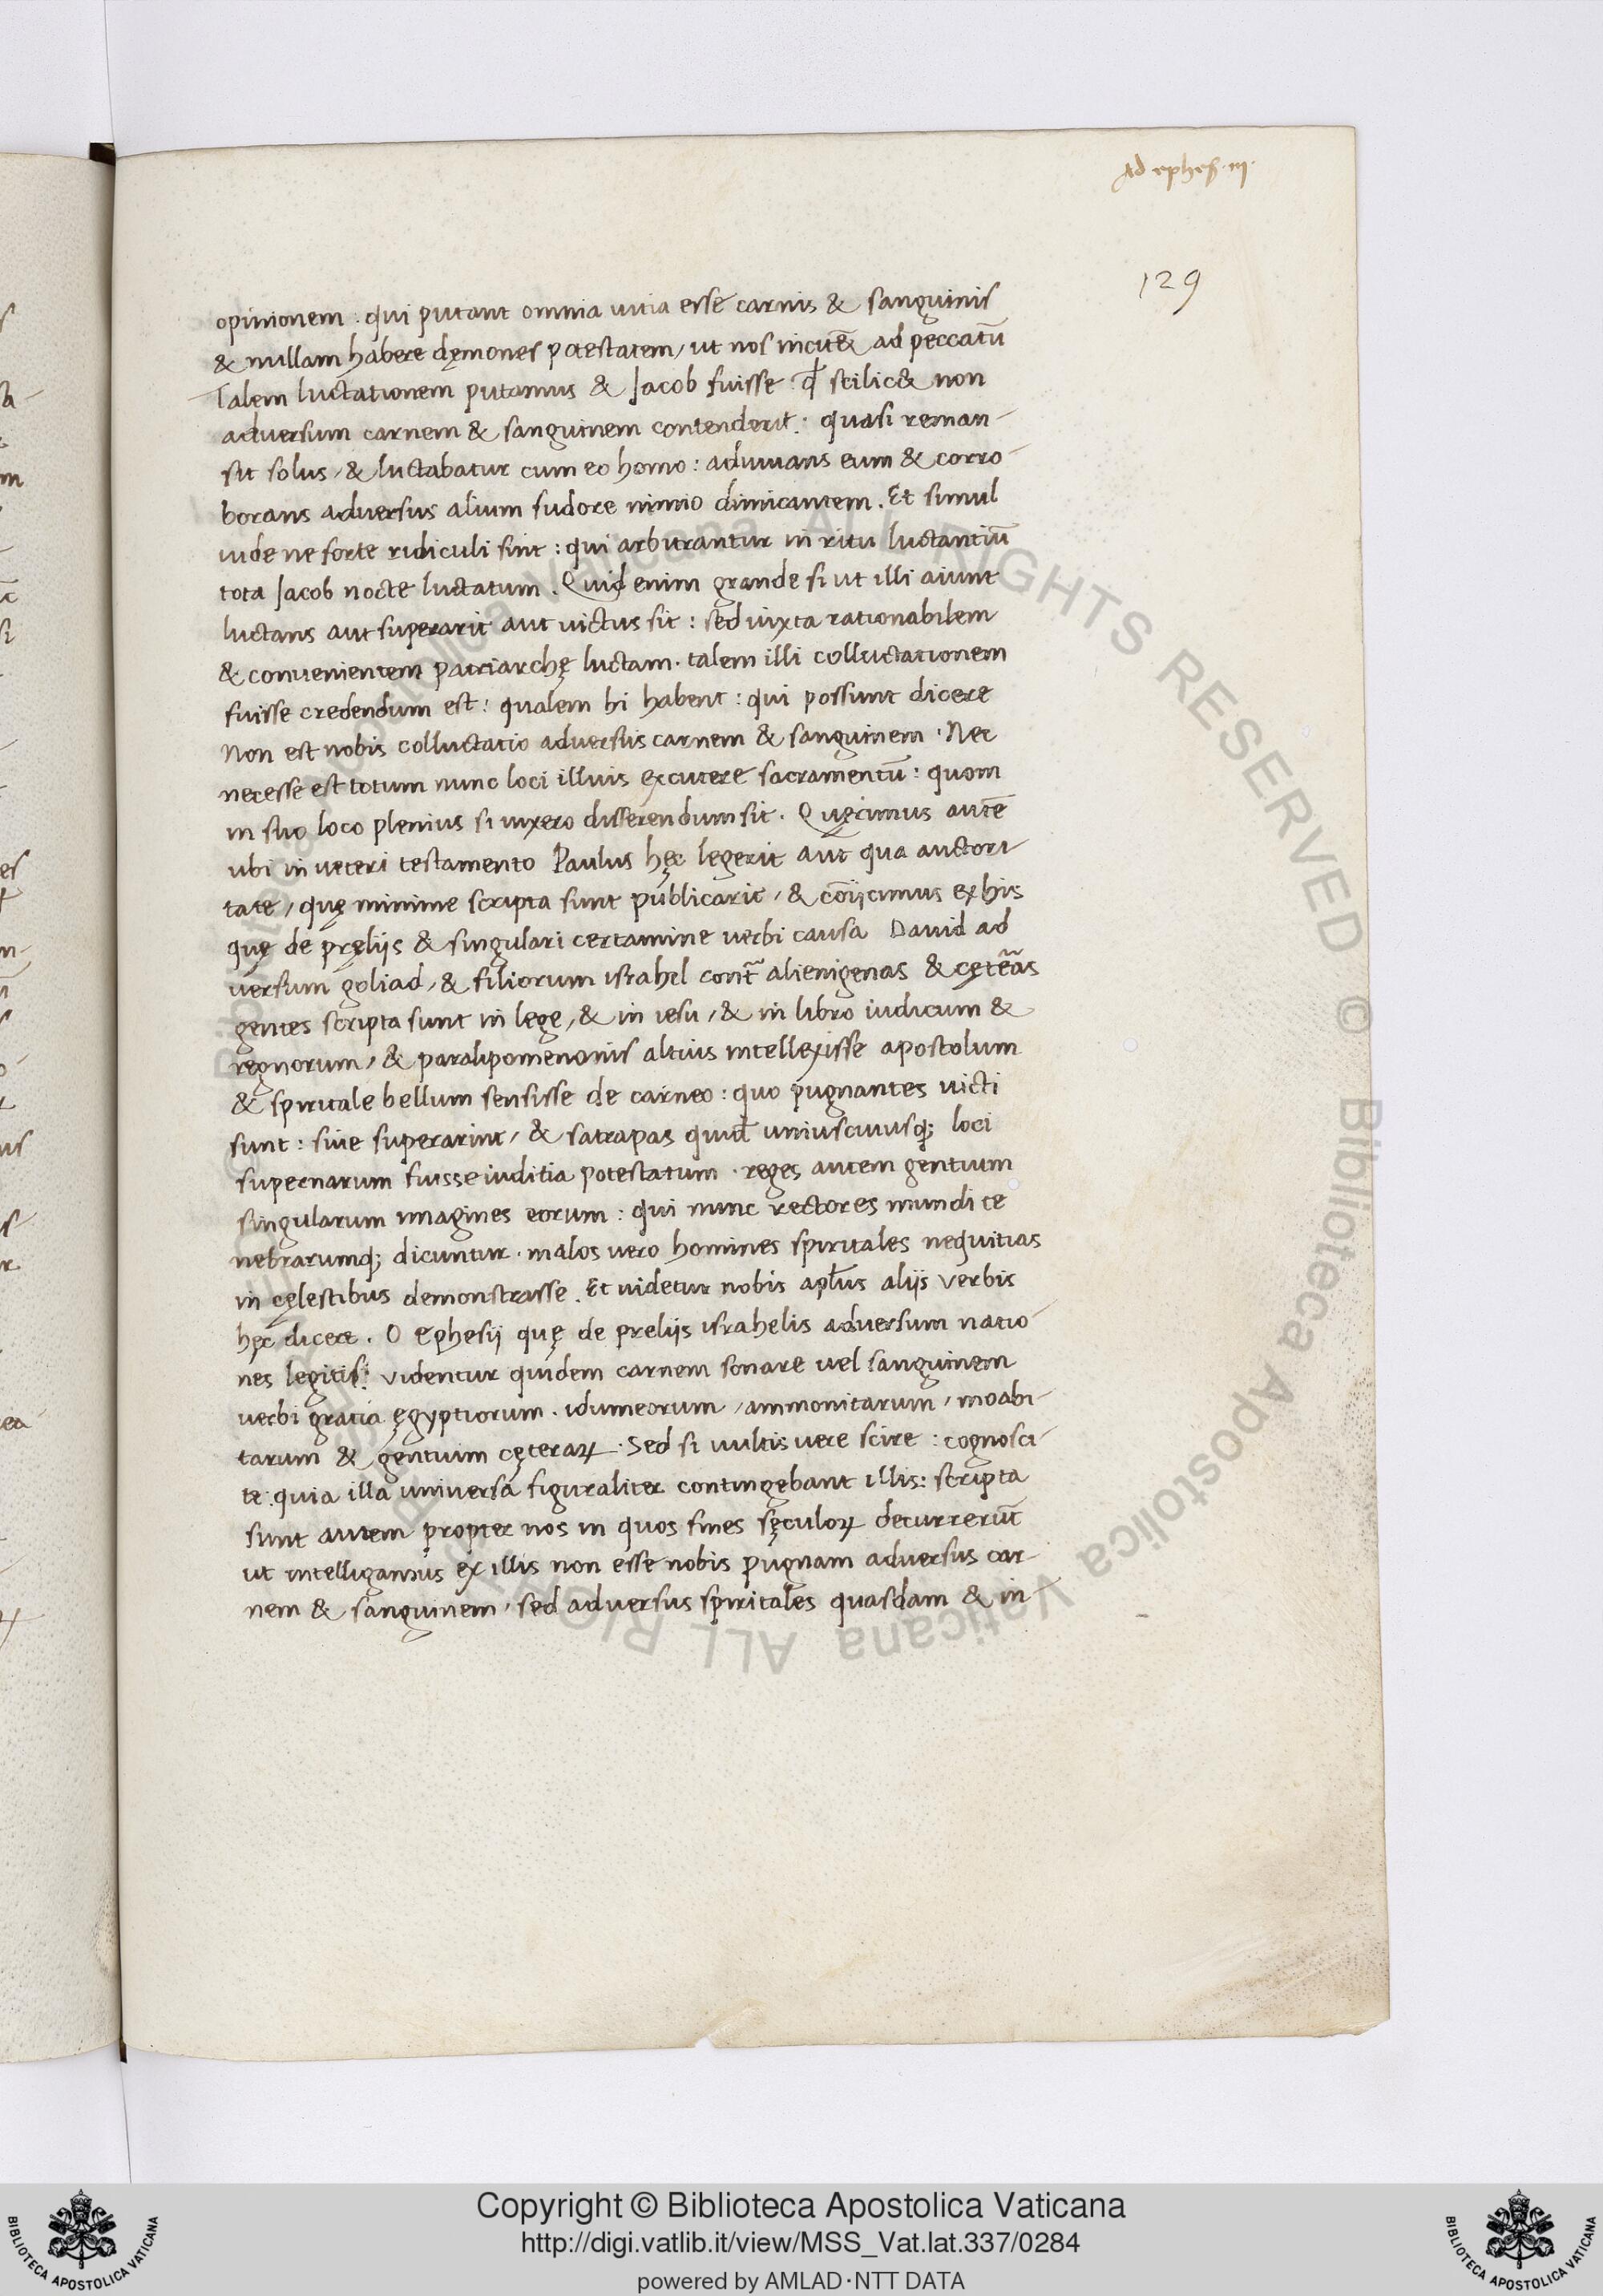 Ad ephes. III.
129
opinionem : qui putant omnia uitia esse carnis & sanguinis
& nullam habere dęmones potestatem, ut nos incitẽ& ad peccatũ
Talem luctationem putamus & Iacob fuisse : qđ scilic& non
adversum carnem & sanguinem contenderit : quasi reman-
sit solus, & luctabatur cum eo homo : adiuvans eum & corro-
borans adversus alium sudore nimio dimicantem. Et simul
uide ne forte ridiculi sint : qui arbitrantur in ritu luctantiũ
tota Iacob nocte luctatum. Quid enim grande si ut illi aiunt
luctans aut superarit aut uictus sit : sed iuxta rationabilem
& convenientem patriarchę luctam. talem illi colluctationem
fuisse credendum est : qualem hi habent : qui possunt dicere
Non est nobis colluctatio adversus carnem & sanguinem. Nec
necesse est totum nunc loci illius excutere sacramentũ : quom
in suo loco plenius si uixero disserendum sit. Quęrimus autẽ
ubi in veteri testamento Paulus hęc legerit aut qua auctori
tate, quę minime scripta sunt publicarit, & cõijcimus ex his
quę de pręlijs & singulari certamine verbi causa David ad
versum goliad, & filiorum israhel cont̃ alienigenas & cętẽas
gentes scripta sunt in lege, & in iesu, & in libro iudicum &
regnorum, & paralipomenonis altius intellexisse apostolum
& spiritale bellum sensisse de carneo : quo pugnantes victi
sunt : sive superarint, & satrapas uniuscuiusq; loci
supernarum fuisse iuditia potestatum. reges autem gentium
singularum imagines eorum : qui nunc rectores mundi te
nebrarumq; dicuntur. malos vero homines spiritales nequitias
in cęlestibus demonstrasse. Et videtur nobis apl̃us alijs verbis
hęc dicere. O Ephesij quę de prelijs israhelis adversum natio-
nes legitis : videntur quidem carnem sonare vel sanguinem
verbi gratia ęgyptiorum. idumeorum, ammonitarum, moabi-
tarum & gentium cęteraꝝ. Sed si vultis vere scire : cognosci-
te quia illa universa figuraliter contingebant illis : scripta
sunt autem propter nos in quos fines sęculoꝝ decurrerũt
ut intelligamus ex illis non esse nobis pugnam adversus car-
nem & sanguinem, sed adversus spiritales quasdam & in-
Biblioteca Apostolica Vaticana ALL RIGHTS RESERVED © Biblioteca Apostolica Vaticana ALL RIGHTS RESERVED ©
Copyright © Biblioteca Apostolica Vaticana
http://digi.vatlib.it/view/MSS_Vat.lat.337/0284
powered by AMLAD·NTT DATA
BIBLIOTECA APOSTOLICA VATICANA
BIBLIOTECA APOSTOLICA VATICANA